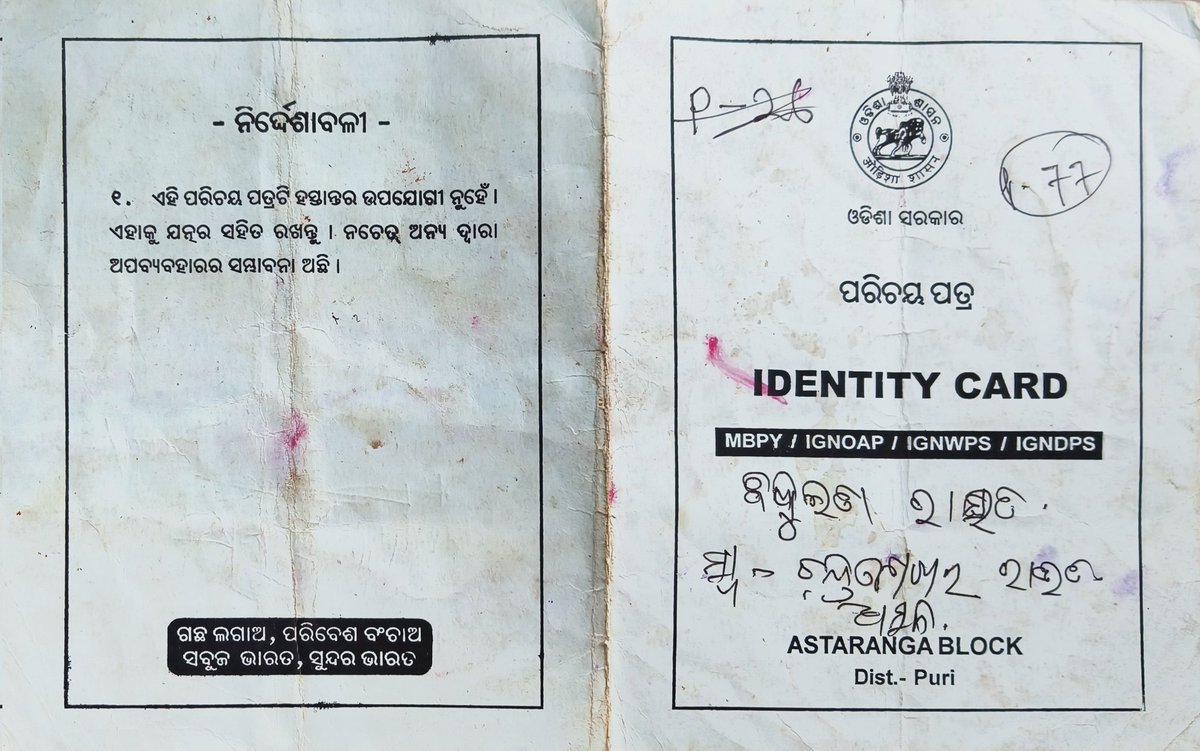 - ନିର୍ଦ୍ଦେଶାବଳୀ -
୧. ଏହି ପରିଚୟ ପତ୍ରଟି ହସ୍ତାନ୍ତର ଉପଯୋଗୀ ନୁହେଁ ।
ଏହାକୁ ଯତ୍ନର ସହିତ ରଖନ୍ତୁ । ନଚେତ୍ ଅନ୍ୟ ଦ୍ୱାରା
ଅପବ୍ୟବହାରର ସମ୍ଭାବନା ଅଛି ।
ଗଛ ଲଗାଅ, ପରିବେଶ ବଂଚାଅ
ସବୁଜ ଭାରତ, ସୁନ୍ଦର ଭାରତ
ଓଡିଶା ଶାସନ
ओड़िशा शासन
77
ଓଡିଶା ସରକାର
ପରିଚୟ ପତ୍ର
IDENTITY CARD
MBPY / IGNOAP / IGNWPS / IGNDPS
ରାଉତ
ASTARANGA BLOCK
Dist.- Puri